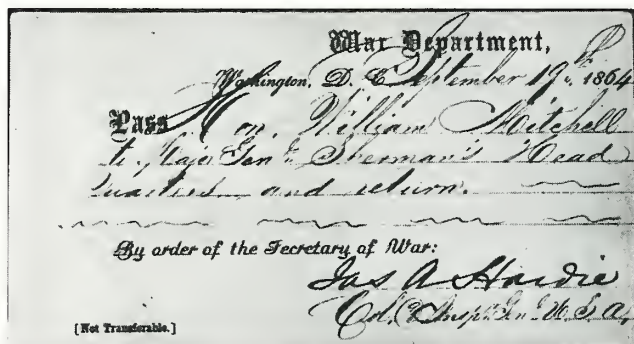 War Department,
Washington, D. C. September 19th 1864
Pass Hon. William Mitchell
to Maj. Genl Sherman's Head
quarters and return.
By order of the Secretary of War:
Jas A Hardie
Col. & Insp. Gen. U.S.A.
[Not Transferable.]